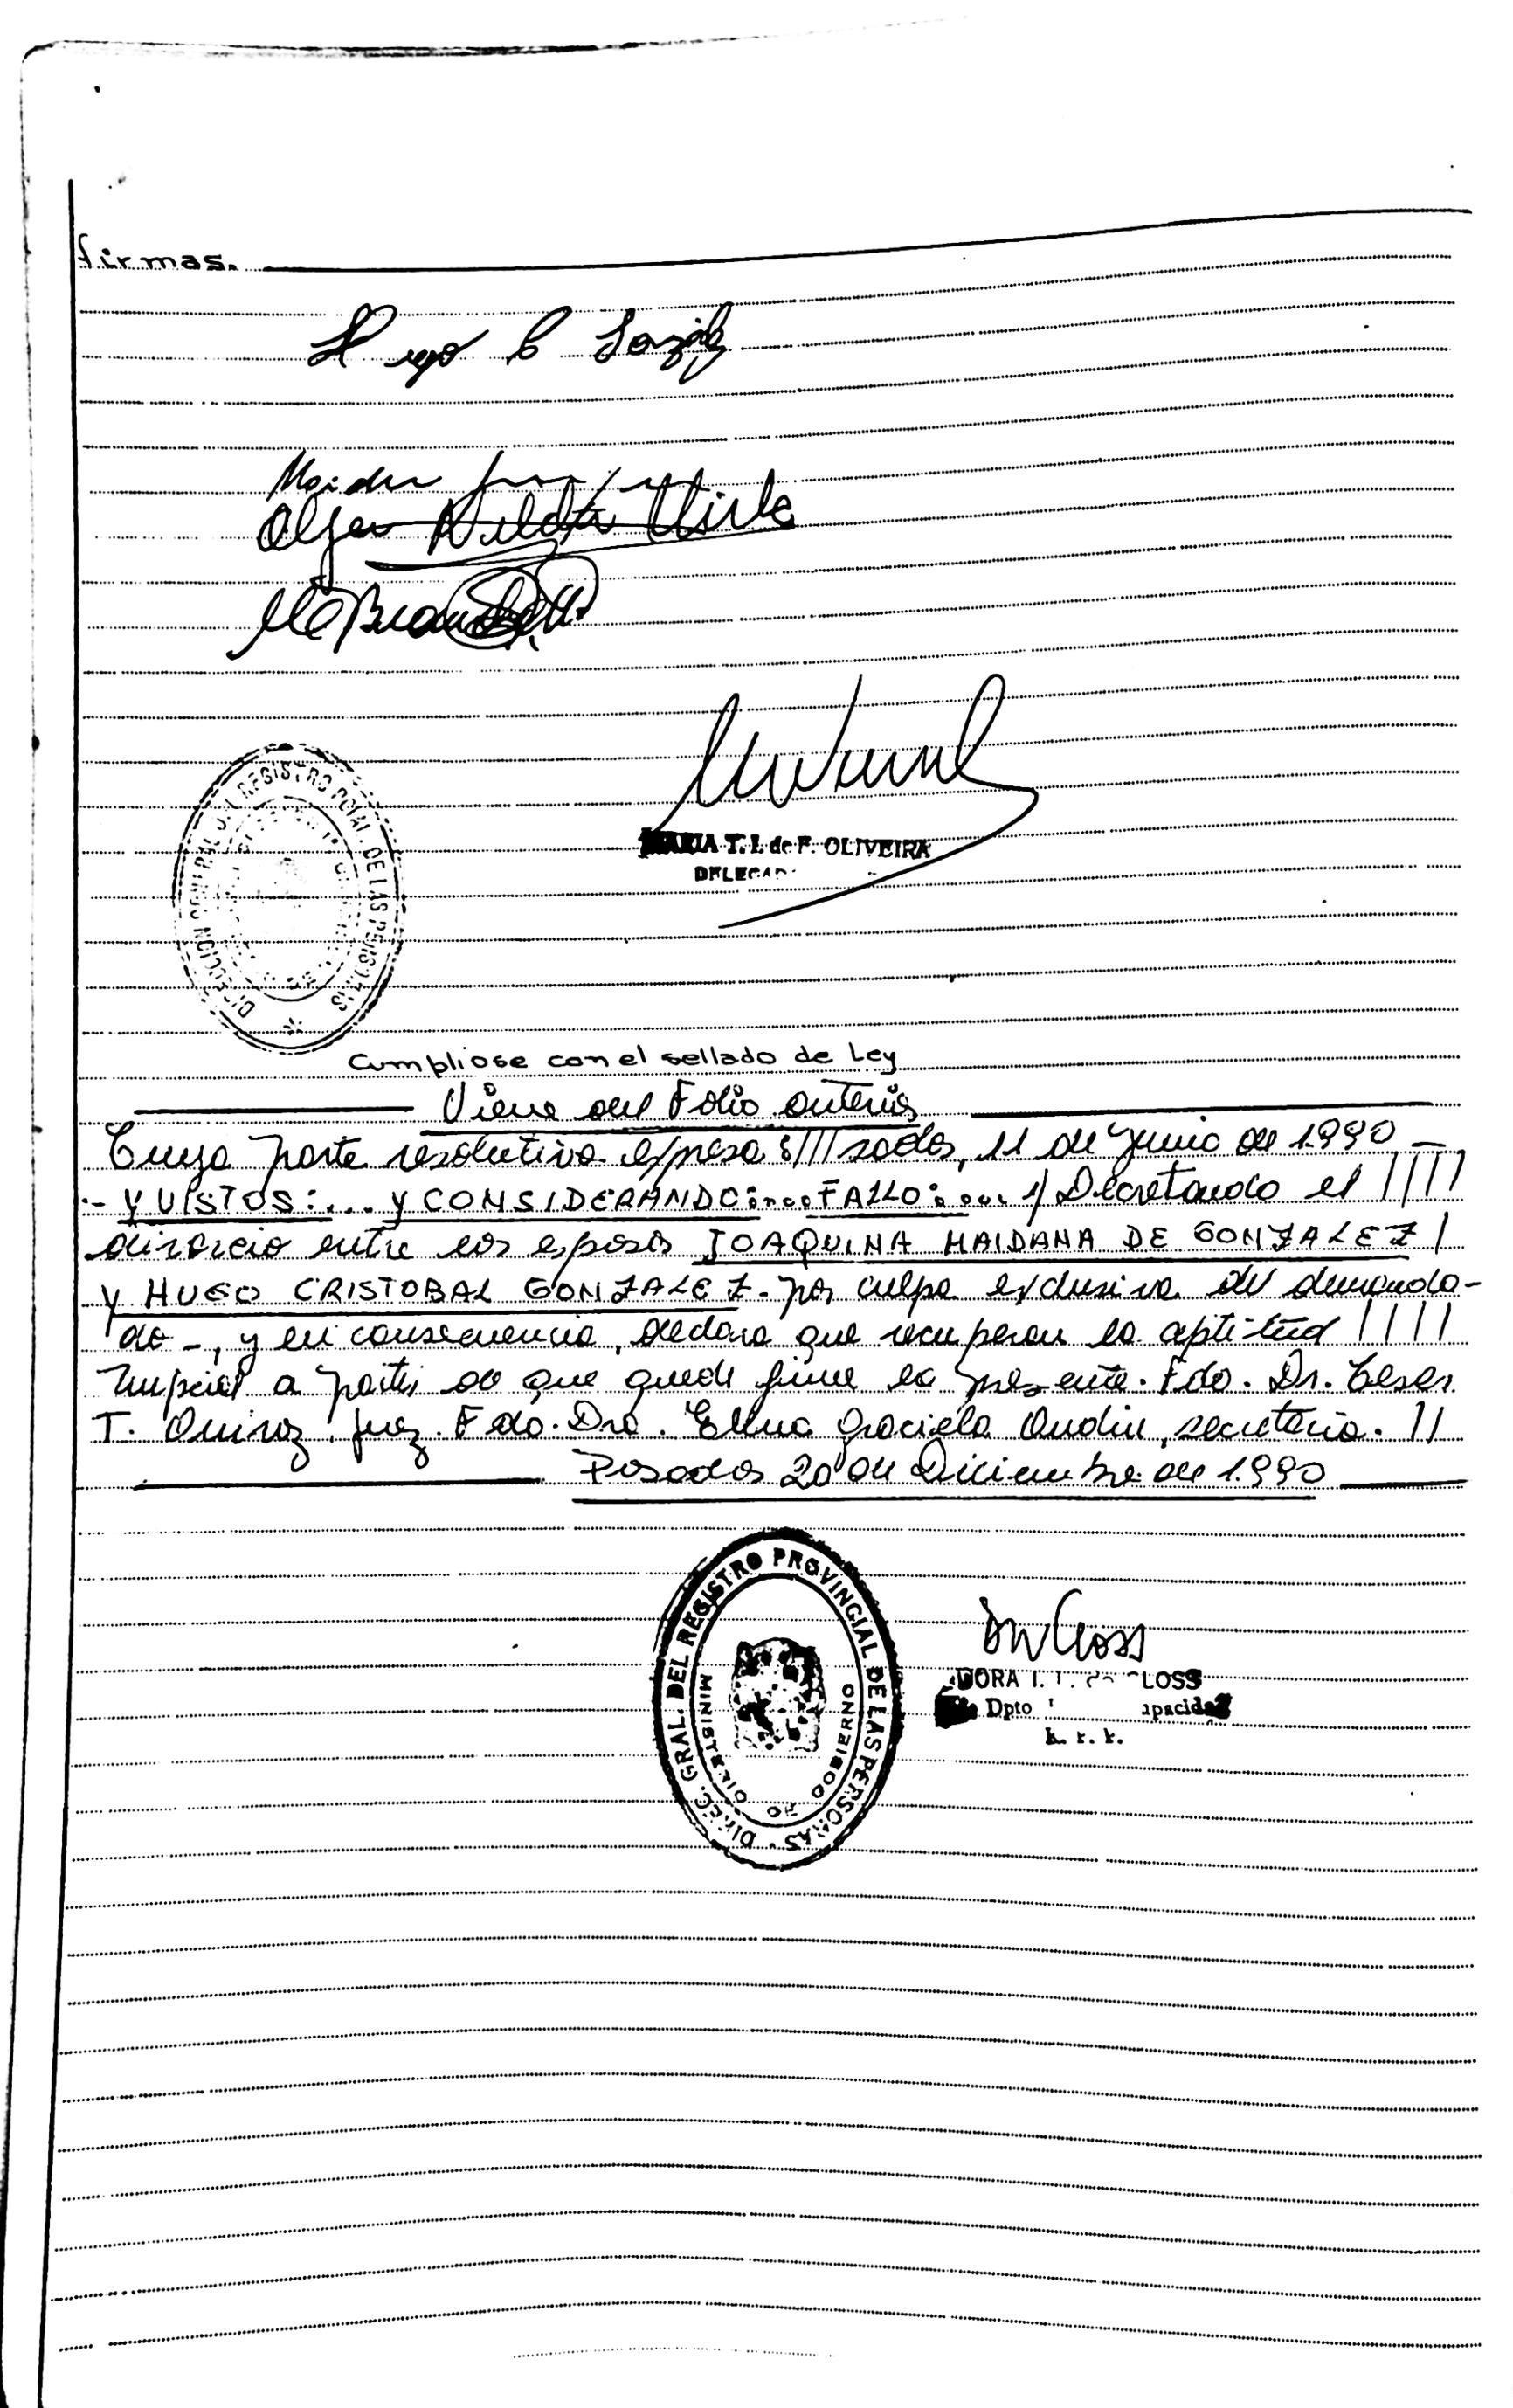 firmas.
Hugo C Gonzalez
Olga Nilda
MARIA T. I. de F. OLIVEIRA
DELEGAD
DIRECCION GENERAL DEL REGISTRO PCIAL. DE LAS PERSONAS
Cumpliose con el sellado de Ley
Viene del Folio anterior
Cuya parte resolutiva expresa:////sadas, 11 de junio de 1.990 —
- Y VISTOS:... Y CONSIDERANDO:... FALLO:... 1/ Decretando el ////
divorcio entre los esposos JOAQUINA MAIDANA DE GONZALEZ /
Y HUGO CRISTOBAL GONZALEZ - por culpa exclusiva del demanda-
do -, y en consecuencia, declara que recuperan la aptitud ////
Nupcial a partir de que quede firme la presente. Fdo. Dr. Cesar
T. Quiroz. juez. Fdo. Dra. Elena Graciela, secretaria. //
Posadas 20 de Diciembre de 1.990
DIREC. GRAL. DEL REGISTRO PROVINCIAL DE LAS PERSONAS
MINISTERIO DE GOBIERNO
DORA LOSS
Dpto apacidad